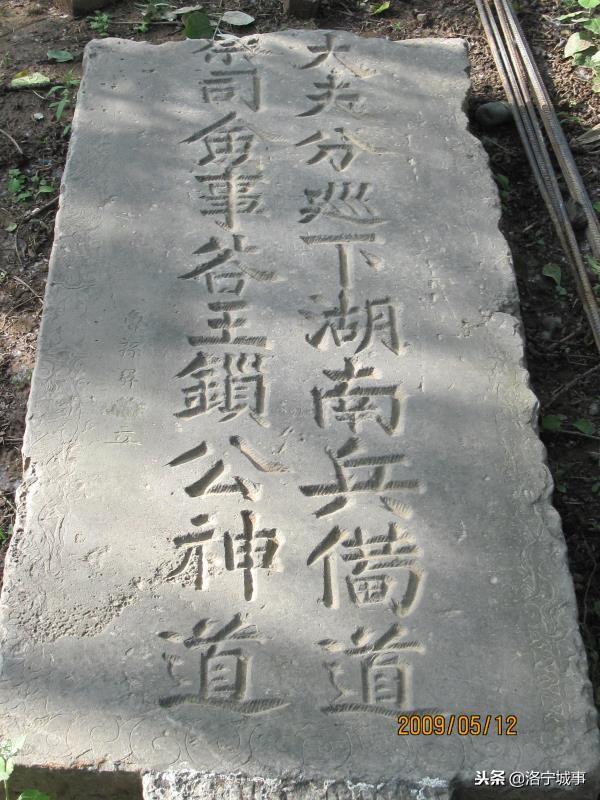 大夫分巡下湖南兵備道
察司僉事谷王鎖公神道
孫 立
2009/05/12
头条@洛宁城事